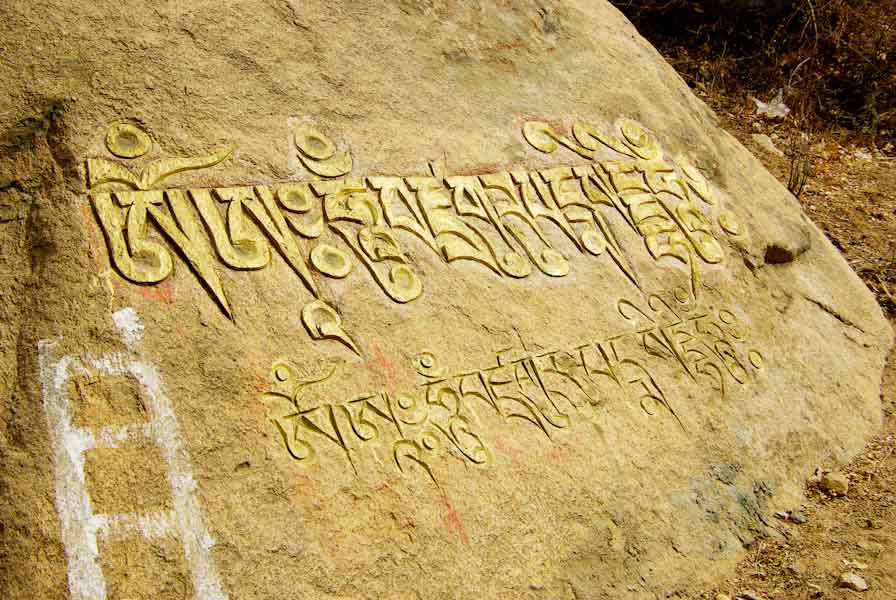 ཨོཾ་ཨཱཿཧཱུྃ་བཛྲ་གུ་རུ་པདྨ་སིདྡྷི་ཧཱུྃ༔
ཨོཾ་ཨཱཿཧཱུྃ་བཛྲ་གུ་རུ་པདྨ་སིདྡྷི་ཧཱུྃ༔